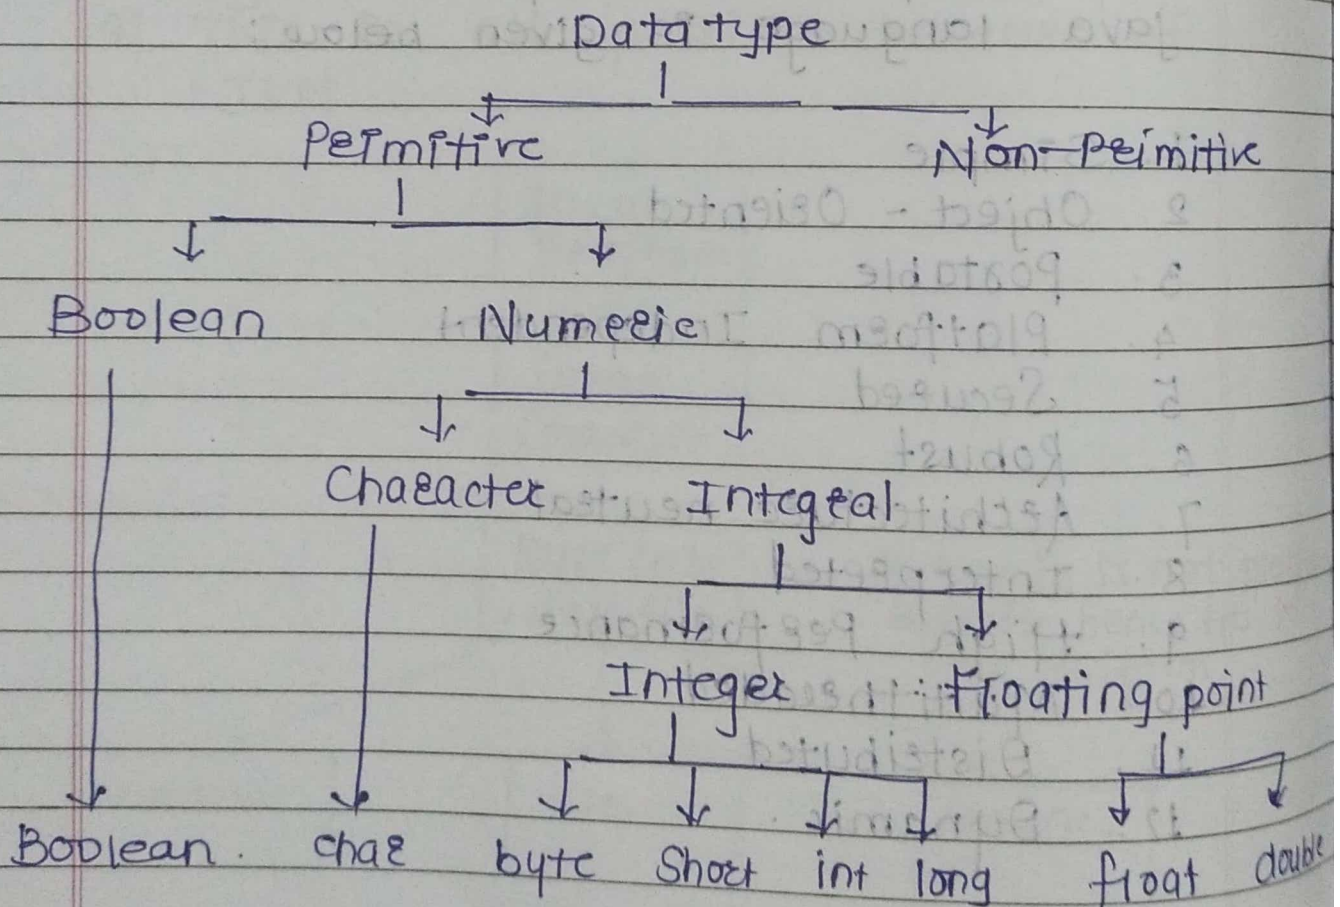 Data type
Primitive Non-Primitive
Boolean Numeric
Character Integral
Integer Floating point
Boolean. char byte Short int long float double